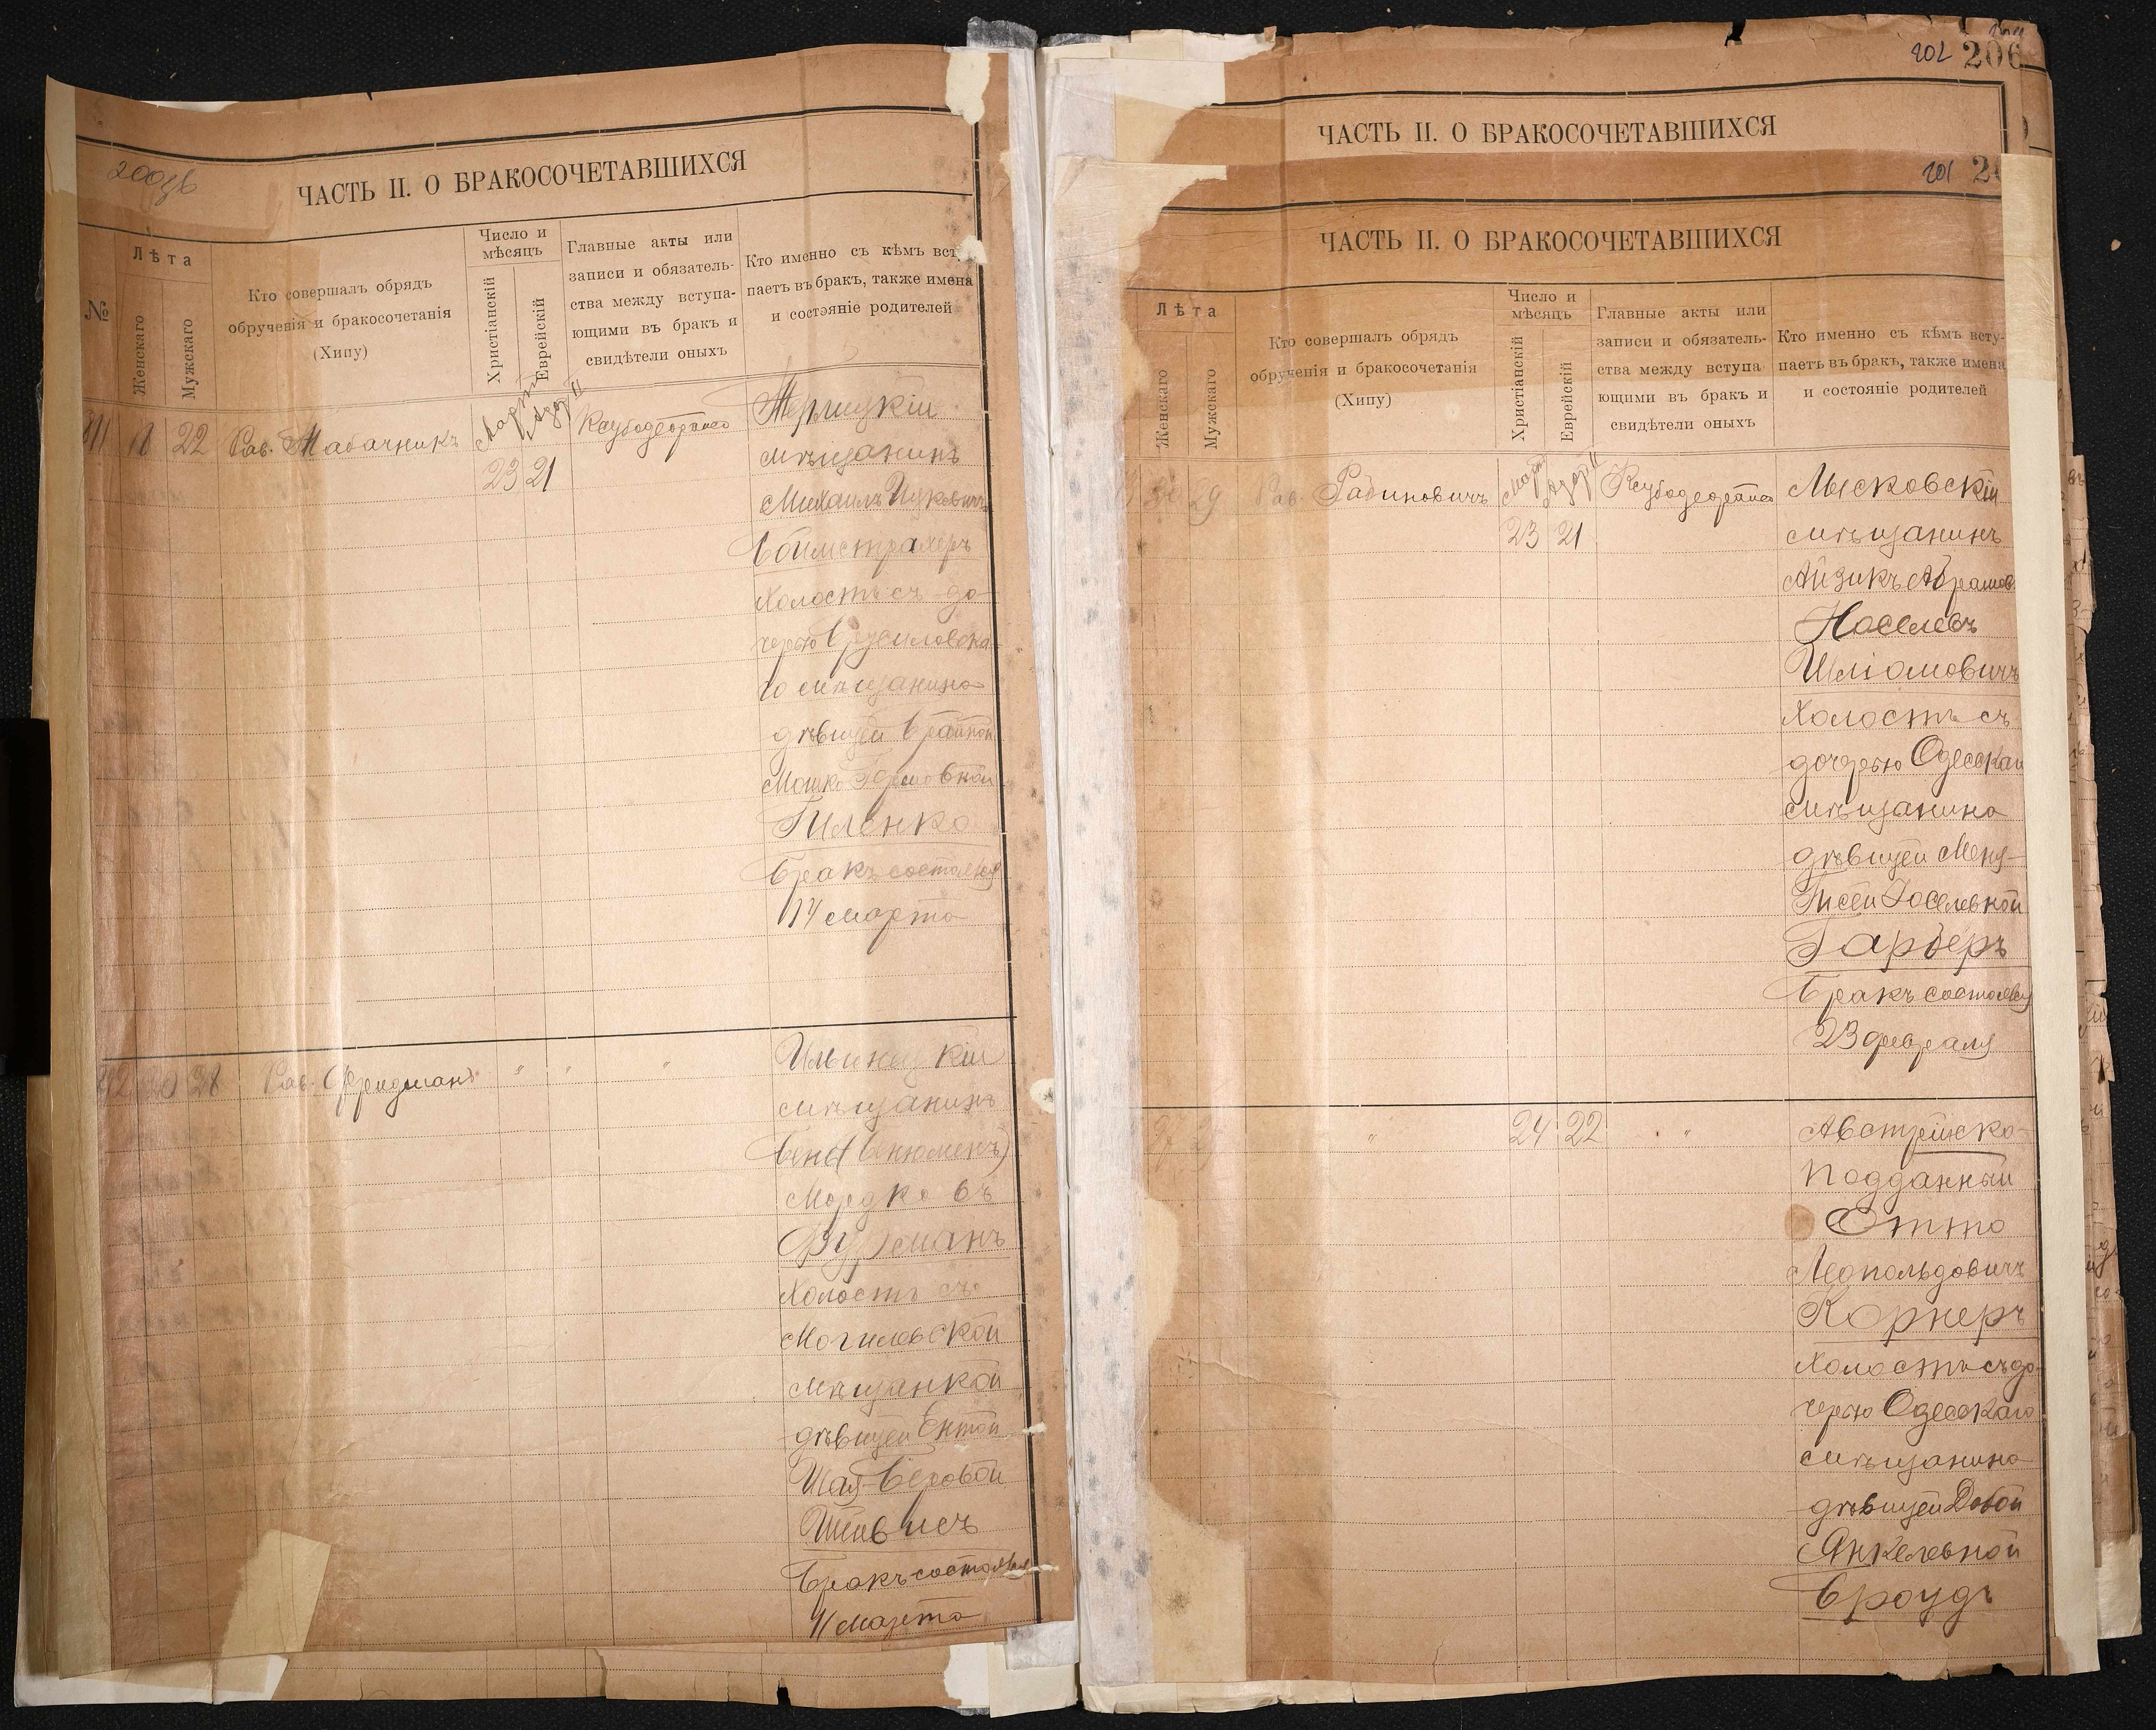 200зв
ЧАСТЬ II. О БРАКОСОЧЕТАВШИХСЯ
№
Лѣта
Женскаго
Мужскаго
Кто совершалъ обрядъ
обрученія и бракосочетанія
(Хипу)
Число и
мѣсяцъ
Христіанскій
Еврейскій
Главные акты или
записи и обязатель-
ства между вступа-
ющими въ бракъ и
свидѣтели оныхъ
Кто именно съ кѣмъ всту
паетъ въ бракъ, также имена
и состояніе родителей
18 22 Рав. Табачникъ
Мартъ
Адаръ II
23 21
мѣщанинъ
Михаилъ Ицковичъ
холостъ съ до-
черью Брусиловска-
го мѣщанина
дѣвицей
Гиленко
Бракъ состоялся
14 марта
28 Рав. Фридманъ " " "
мѣщанинъ
Бенд(Бенюменъ)
Мордковъ
Фурманъ
Холостъ съ
Могилевской
мѣщанкой
дѣвицей Ентой
Шая-Беровой
Бракъ состоялся
11 марта
202 206
ЧАСТЬ II. О БРАКОСОЧЕТАВШИХСЯ
201 2
ЧАСТЬ II. О БРАКОСОЧЕТАВШИХСЯ
Лѣта
Женскаго
Мужскаго
Кто совершалъ обрядъ
обрученія и бракосочетанія
(Хипу)
Число и
мѣсяцъ
Христіанскій
Еврейскій
Главные акты или
записи и обязатель-
ства между вступа
ющими въ бракъ и
свидѣтели оныхъ
Кто именно съ кѣмъ всту-
паетъ въ бракъ, также имена
и состояніе родителей
29 Рав. Рабиновичъ
Мартъ
Адаръ II
23 21
Лысковскій
мѣщанинъ
Айзикъ Абрамов
Іоселевъ
Шліомовичъ
Холостъ съ
дочерью Одесскаго
мѣщанина
дѣвицей
Іоселевной
Гарберъ
Бракъ состоялся
23 февраля
" 24 22 "
Австрійско-
подданный
Отто
Леопольдовичъ
Корнеръ
Холостъ съ до-
черью Одесскаго
мѣщанина
дѣвицей Добой
Янкелевной
Броудъ